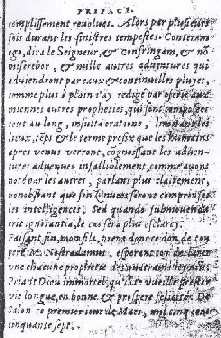 PREFACE.
complissement revolues. Alors par plusieurs
fois durant les sinistres tempestes. Conteram e-
go, dira le Seigneur, & confringam, & non
miserebor, & mille autres adventures qui
adviendront par eaux & continuelles pluyes,
comme plus à plain
miennes autres propheties, qui sont
tout au long, in soluta oratione,
lieux, temps & le terme prefix que les humains
apres venus verront, cognoissant les adventu-
res advenues infailliblement, comme avons
noté par les autres, parlans plus clairement,
nonobstant que sous nuée seront comprinses
les intelligences: Sed quando submovenda
erit ignorantia, le cas sera plus esclarci.
Faisant fin, mon fils, prens donc ce don de ton
pere M. Nostradamus, esperant toy declarer
une chacune prophetie
Priant Dieu immortel, qu'il te vueille prester
vie longue, en bonne & prospere felicité. De
Salon ce premier de Mars, mil cinq cens
cinquante sept.